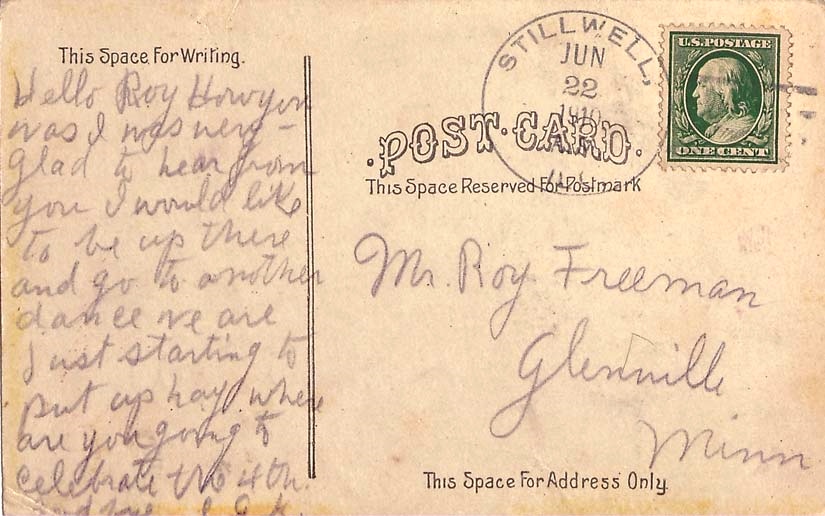 This Space For Writing.
Hello Roy How you
was I was very –
glad to hear from
you I would like
to be up there
and go to another
dance we are
Just starting to
put up hay where
are you going to
celebrate the 4th.
STILLWELL,
JUN
22
1910
U.S. POSTAGE
ONE CENT
POST CARD.
This Space Reserved For Postmark
Mr. Roy Freeman
Glennville
Minn
This Space For Address Only.